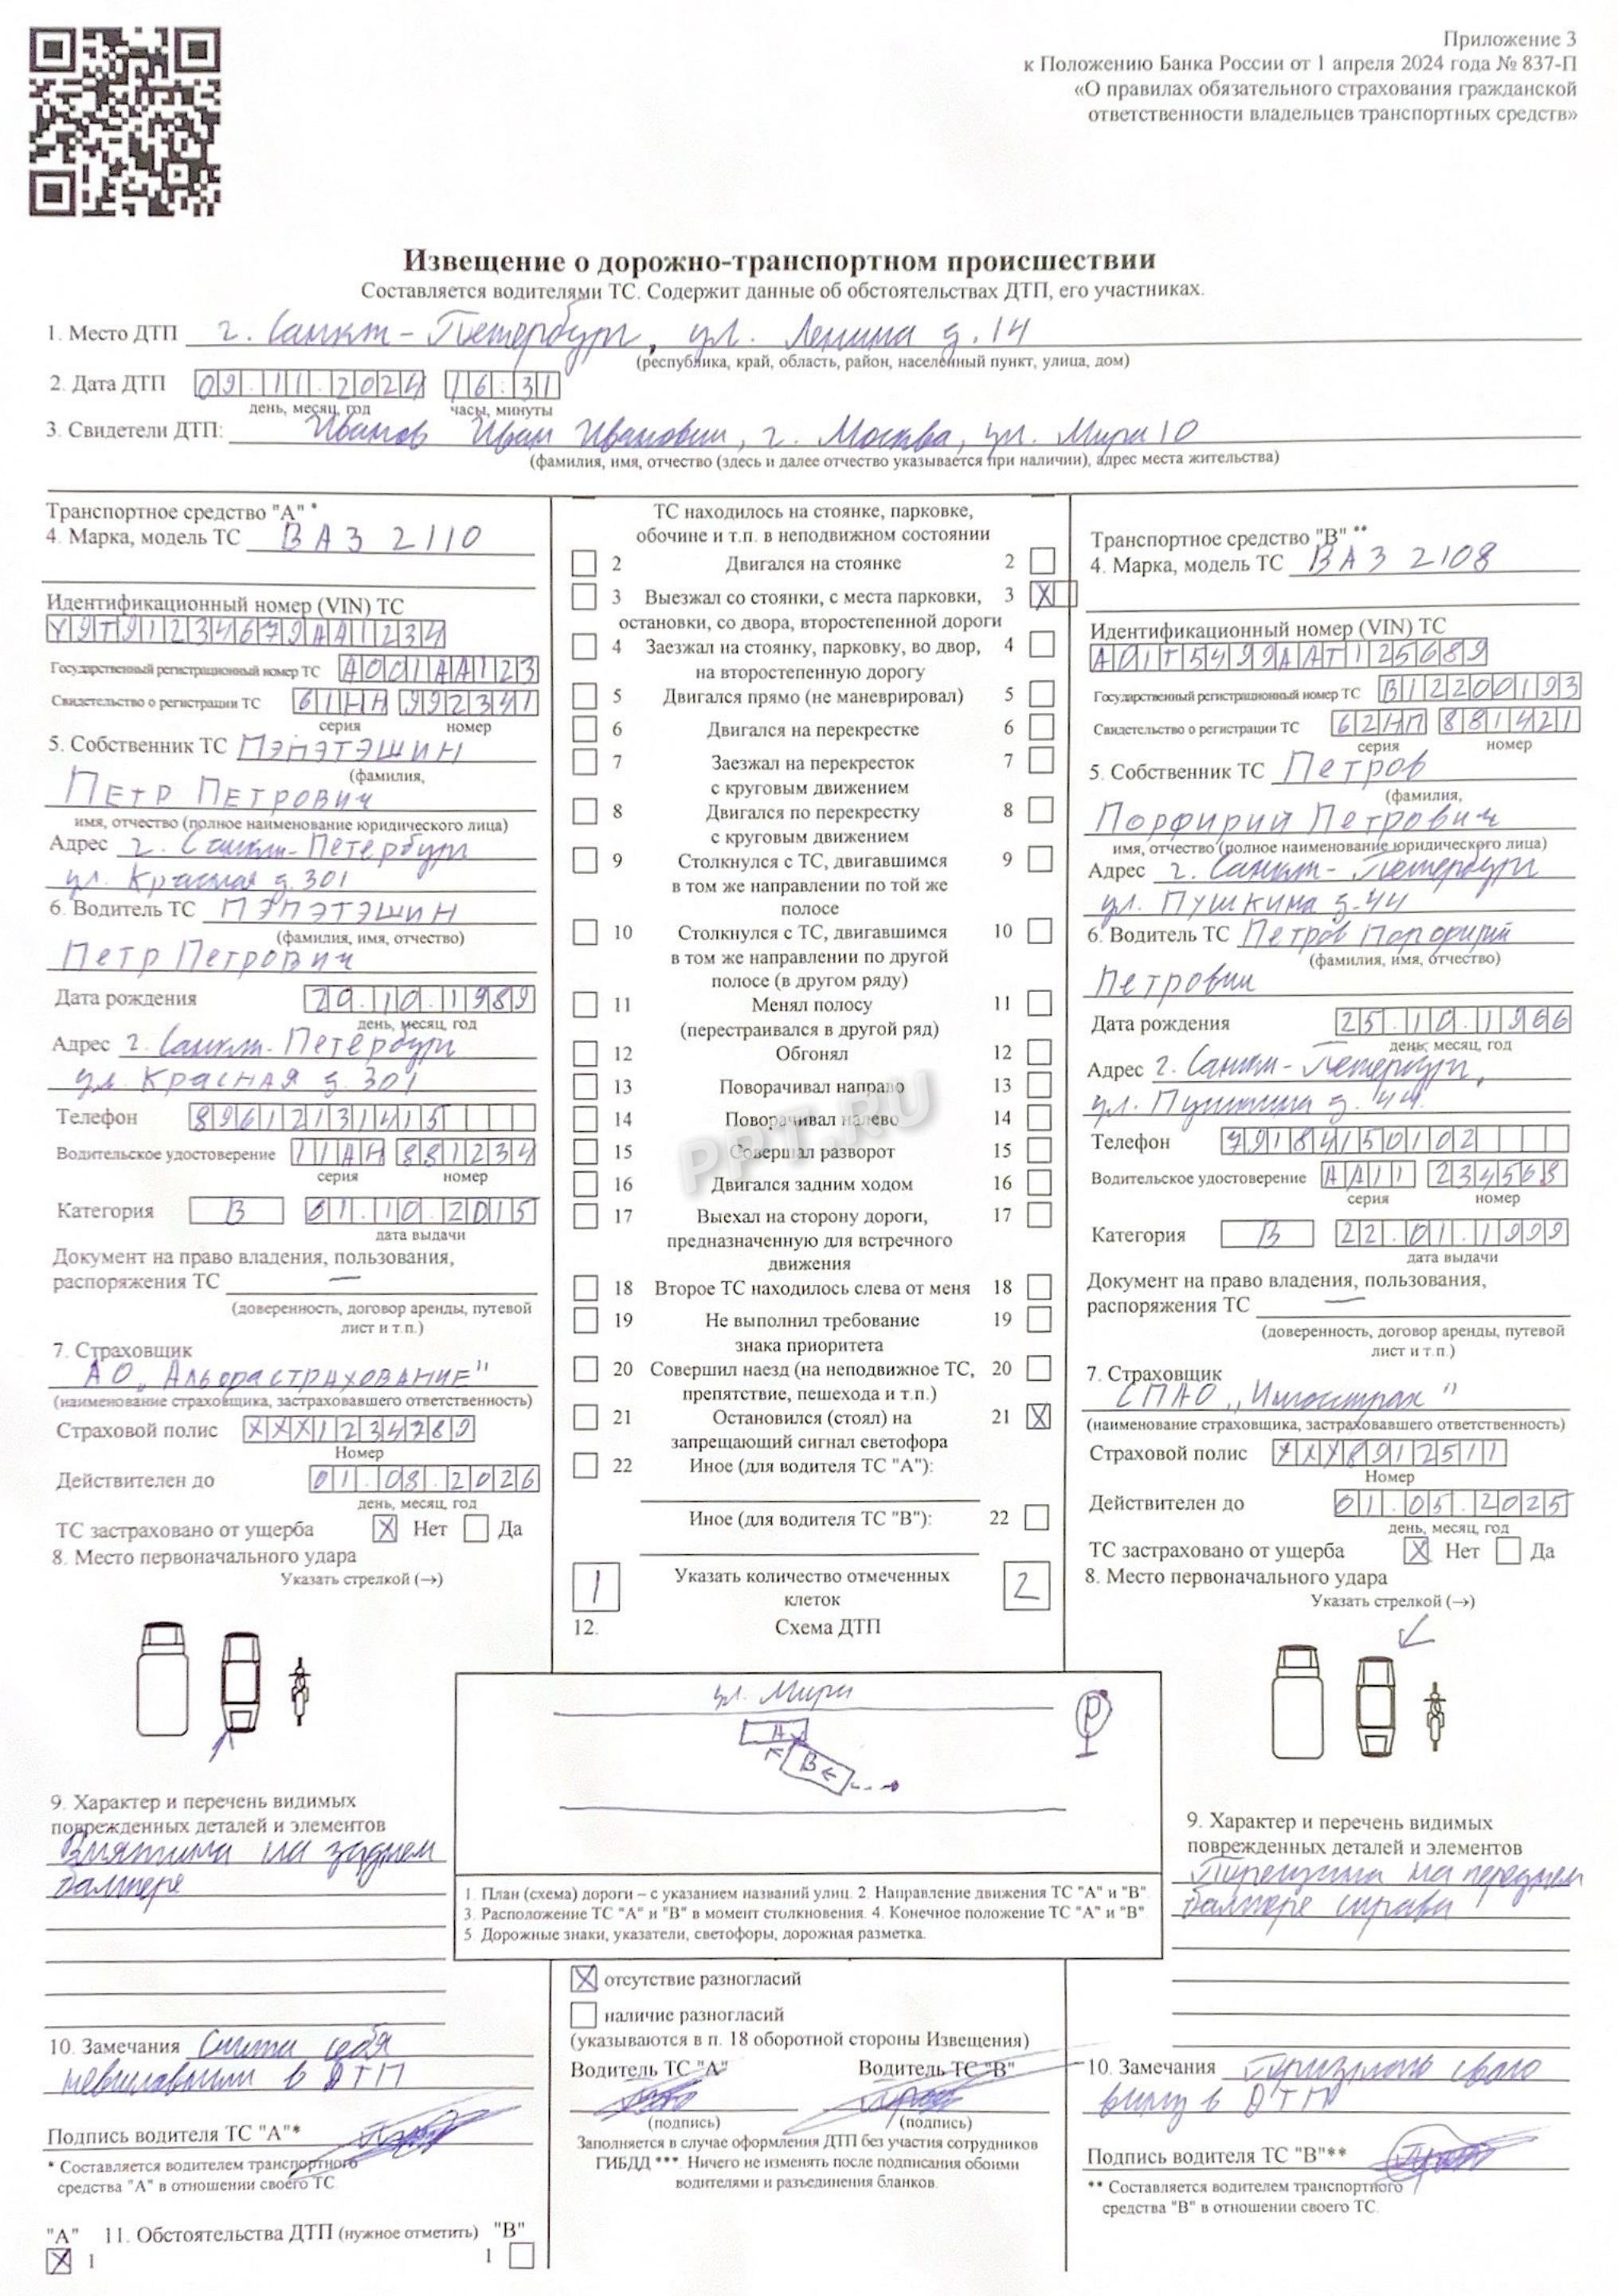 Приложение 3
к Положению Банка России от 1 апреля 2024 года № 837-П
«О правилах обязательного страхования гражданской
ответственности владельцев транспортных средств»
Извещение о дорожно-транспортном происшествии
Составляется водителями ТС. Содержит данные об обстоятельствах ДТП, его участниках.
1. Место ДТП г. Санкт-Петербург, ул. Ленина д. 14
(республика, край, область, район, населённый пункт, улица, дом)
2. Дата ДТП 09.11.2024 16:31
день, месяц, год часы, минуты
3. Свидетели ДТП: Иванов Иван Иванович, г. Москва, ул. Мира 10
(фамилия, имя, отчество (здесь и далее отчество указывается при наличии), адрес места жительства)
Транспортное средство "А" *
4. Марка, модель ТС ВАЗ 2110
Идентификационный номер (VIN) ТС
Y9T91234679AA1234
Государственный регистрационный номер ТС А001АА123
Свидетельство о регистрации ТС 61НН 992341
серия номер
5. Собственник ТС ПЭПЭТЭШИН
(фамилия,
ПЕТР ПЕТРОВИЧ
имя, отчество (полное наименование юридического лица)
Адрес г. Санкт-Петербург
ул. Красная д. 301
6. Водитель ТС ПЭПЭТЭШИН
(фамилия, имя, отчество)
ПЕТР ПЕТРОВИЧ
Дата рождения 20.10.1989
день, месяц, год
Адрес г. Санкт-Петербург
ул. КРАСНАЯ д. 301
Телефон 89612131415
Водительское удостоверение 11АН 881234
серия номер
Категория В 01.10.2015
дата выдачи
Документ на право владения, пользования,
распоряжения ТС —
(доверенность, договор аренды, путевой
лист и т.п.)
7. Страховщик
АО „АльфаСТРАХОВАНИЕ"
(наименование страховщика, застраховавшего ответственность)
Страховой полис XXX1234789
Номер
Действителен до 01.08.2026
день, месяц, год
ТС застраховано от ущерба X Нет Да
8. Место первоначального удара
Указать стрелкой (→)
9. Характер и перечень видимых
поврежденных деталей и элементов
Вмятина на заднем
бампере
10. Замечания Считаю себя
невиновным в ДТП
Подпись водителя ТС "А"*
* Составляется водителем транспортного
средства "А" в отношении своего ТС.
"А" 11. Обстоятельства ДТП (нужное отметить) "В"
X 1 1
ТС находилось на стоянке, парковке,
обочине и т.п. в неподвижном состоянии
2 Двигался на стоянке 2
3 Выезжал со стоянки, с места парковки, 3 X
остановки, со двора, второстепенной дороги
4 Заезжал на стоянку, парковку, во двор, 4
на второстепенную дорогу
5 Двигался прямо (не маневрировал) 5
6 Двигался на перекрестке 6
7 Заезжал на перекресток 7
с круговым движением
8 Двигался по перекрестку 8
с круговым движением
9 Столкнулся с ТС, двигавшимся 9
в том же направлении по той же
полосе
10 Столкнулся с ТС, двигавшимся 10
в том же направлении по другой
полосе (в другом ряду)
11 Менял полосу 11
(перестраивался в другой ряд)
12 Обгонял 12
13 Поворачивал направо 13
14 Поворачивал налево 14
15 Совершал разворот 15
16 Двигался задним ходом 16
17 Выехал на сторону дороги, 17
предназначенную для встречного
движения
18 Второе ТС находилось слева от меня 18
19 Не выполнил требование 19
знака приоритета
20 Совершил наезд (на неподвижное ТС, 20
препятствие, пешехода и т.п.)
21 Остановился (стоял) на 21 X
запрещающий сигнал светофора
22 Иное (для водителя ТС "А"):
Иное (для водителя ТС "В"): 22
1 Указать количество отмеченных 2
клеток
12. Схема ДТП
ул. Мира
Р
А
В
1. План (схема) дороги – с указанием названий улиц. 2. Направление движения ТС "А" и "В".
3. Расположение ТС "А" и "В" в момент столкновения. 4. Конечное положение ТС "А" и "В".
5. Дорожные знаки, указатели, светофоры, дорожная разметка.
X отсутствие разногласий
наличие разногласий
(указываются в п. 18 оборотной стороны Извещения)
Водитель ТС "А" Водитель ТС "В"
(подпись) (подпись)
Заполняется в случае оформления ДТП без участия сотрудников
ГИБДД ***. Ничего не изменять после подписания обоими
водителями и разъединения бланков.
Транспортное средство "В" **
4. Марка, модель ТС ВАЗ 2108
Идентификационный номер (VIN) ТС
A01T5499AAT125689
Государственный регистрационный номер ТС В12200193
Свидетельство о регистрации ТС 62НП 881421
серия номер
5. Собственник ТС Петров
(фамилия,
Порфирий Петрович
имя, отчество (полное наименование юридического лица)
Адрес г. Санкт-Петербург
ул. Пушкина д. 44
6. Водитель ТС Петров Порфирий
(фамилия, имя, отчество)
Петрович
Дата рождения 25.10.1966
день, месяц, год
Адрес г. Санкт-Петербург,
ул. Пушкина д. 44.
Телефон 79184150102
Водительское удостоверение АА11 234568
серия номер
Категория В 22.01.1999
дата выдачи
Документ на право владения, пользования,
распоряжения ТС —
(доверенность, договор аренды, путевой
лист и т.п.)
7. Страховщик
СПАО „Ингосстрах"
(наименование страховщика, застраховавшего ответственность)
Страховой полис XXX8912511
Номер
Действителен до 01.05.2025
день, месяц, год
ТС застраховано от ущерба X Нет Да
8. Место первоначального удара
Указать стрелкой (→)
9. Характер и перечень видимых
поврежденных деталей и элементов
на переднем
бампере справа
10. Замечания Признаю свою
вину в ДТП
Подпись водителя ТС "В"**
** Составляется водителем транспортного
средства "В" в отношении своего ТС.
PPT.RU